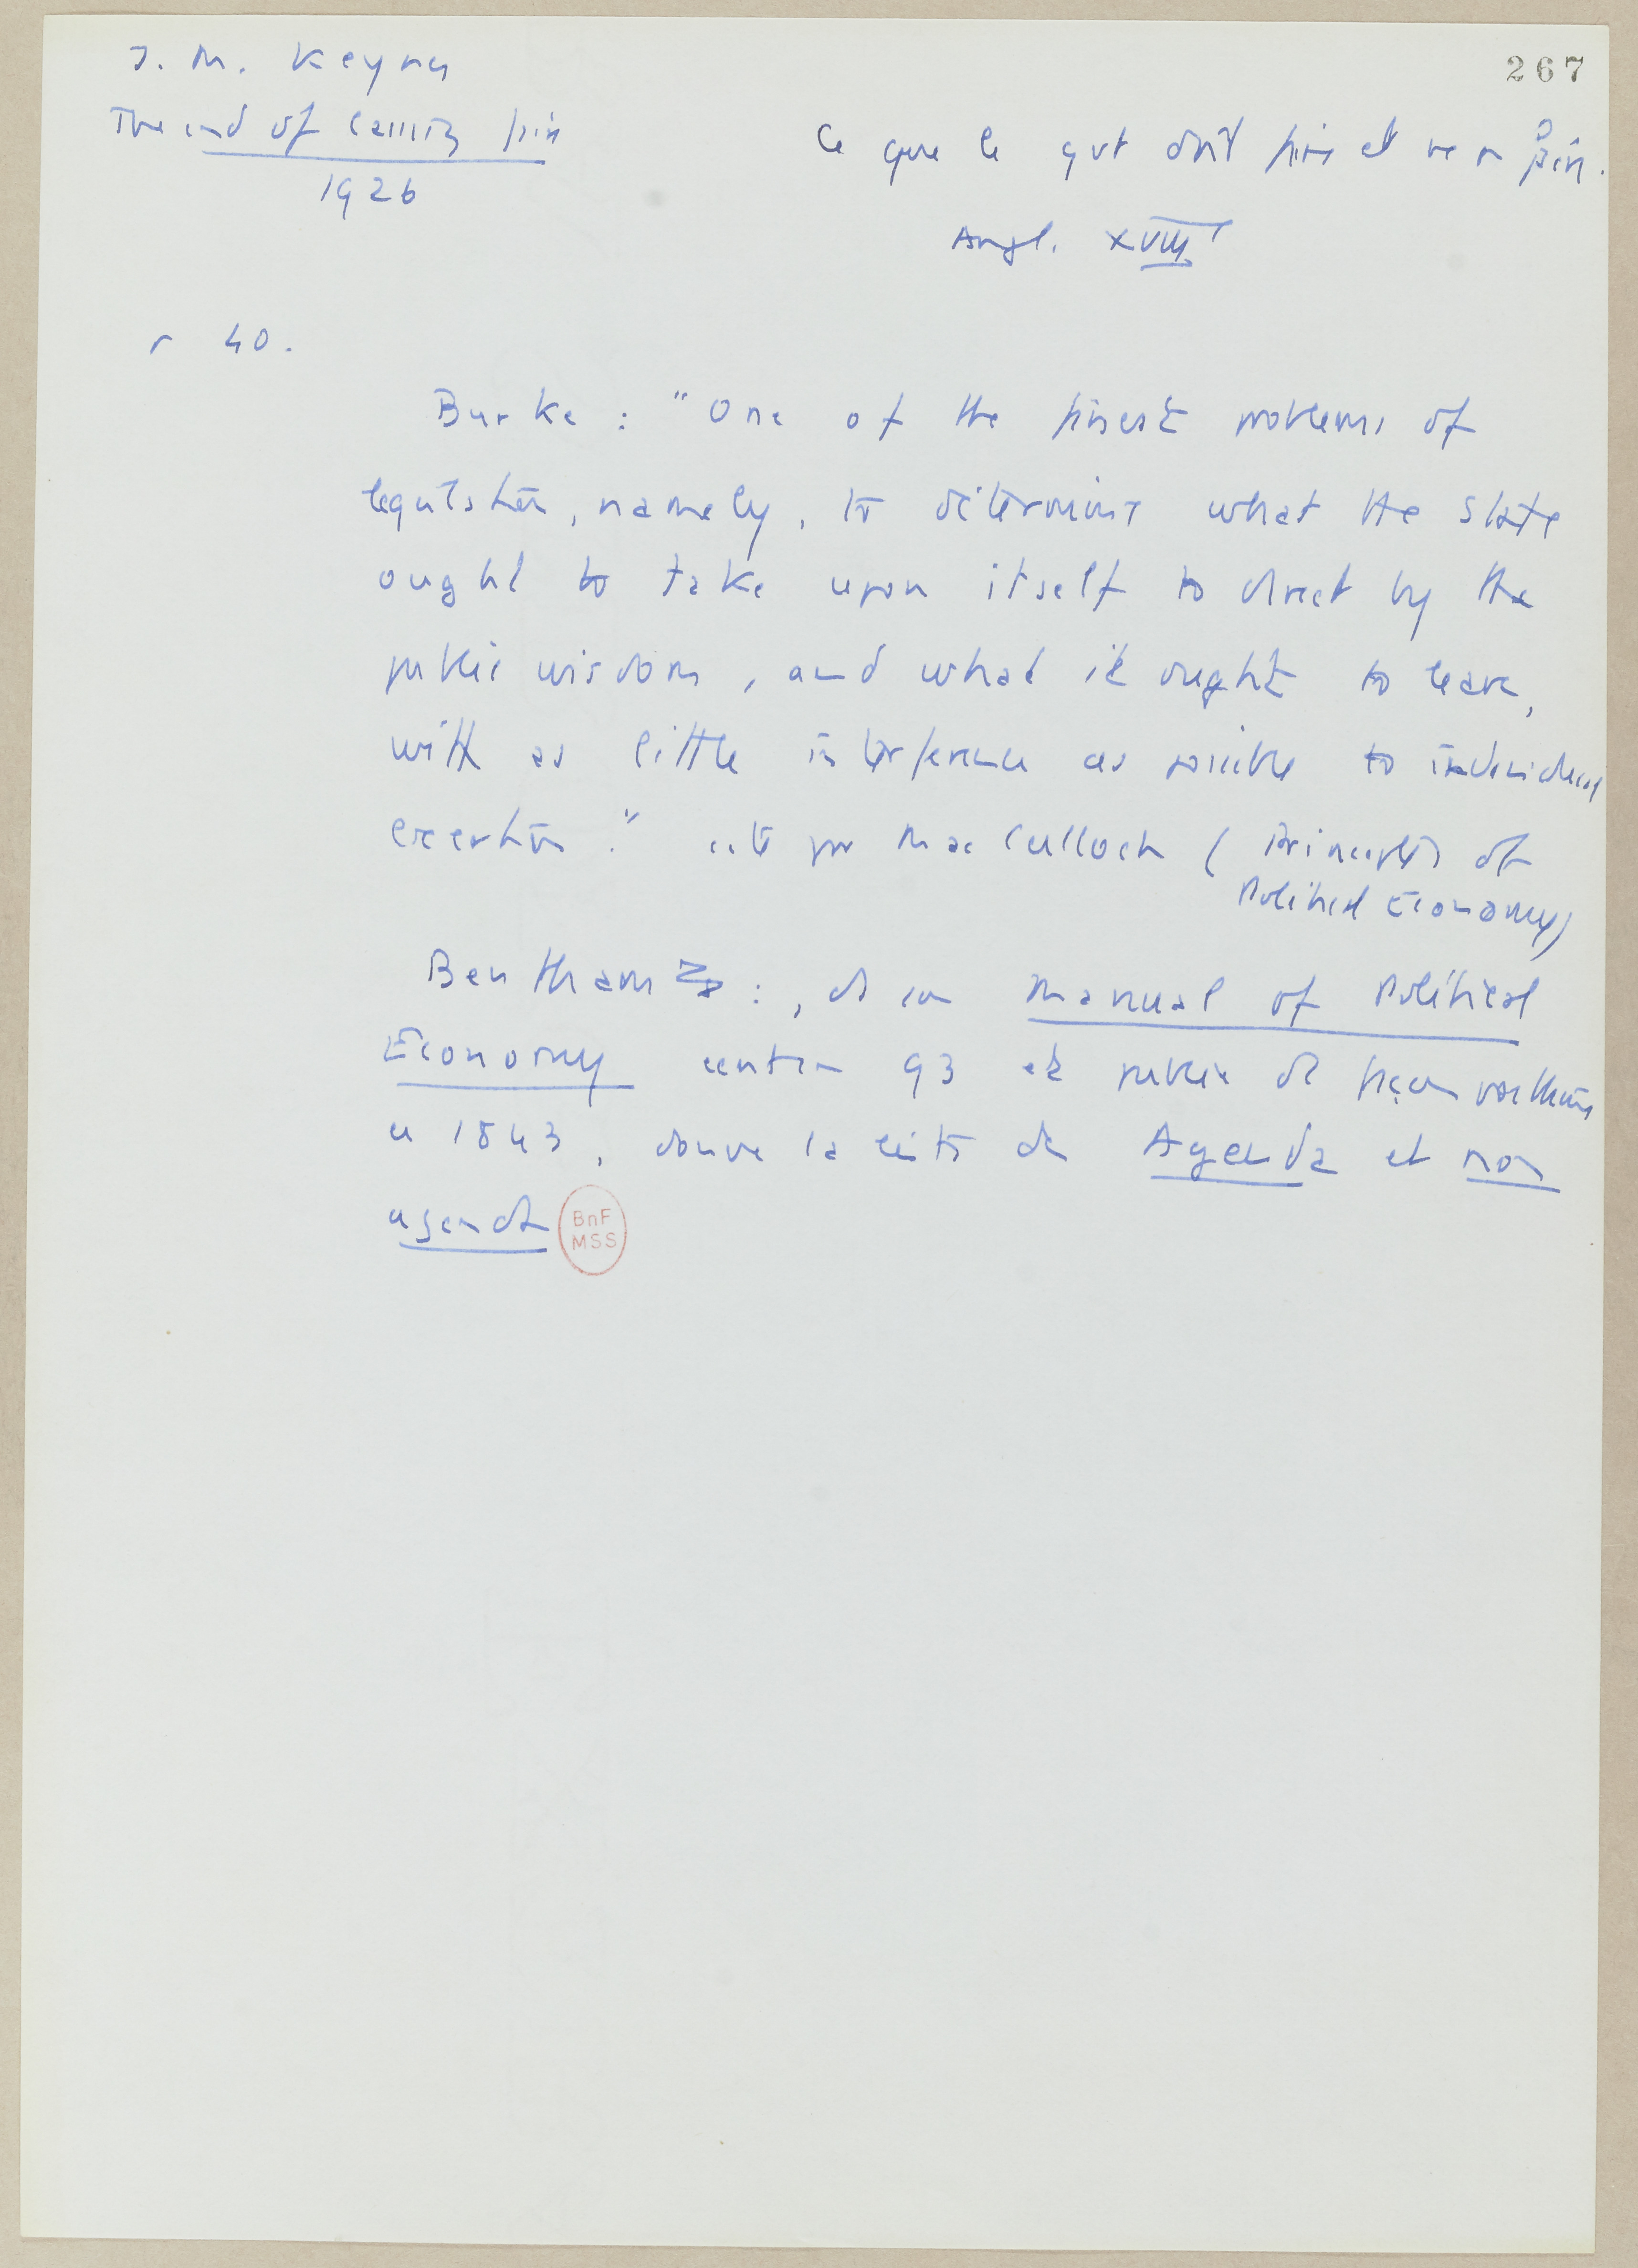 267
J. M. Keynes
The end of laissez faire
1926
Ce que le gvt doit faire et ne pas faire.
Angl. XVIII
p 40.
Burke : "One of the finest problems of
legislation, namely, to determine what the State
ought to take upon itself to direct by the
public wisdom, and what it ought to leave,
with as little interference as possible to individual
exertion." cité par Mac Culloch (Principles of
Political Economy)
Bentham : , ds son Manual of Political
Economy 93 et publié de façon posthume
en 1843, donne la liste des Agenda et non
agenda
BnF
MSS